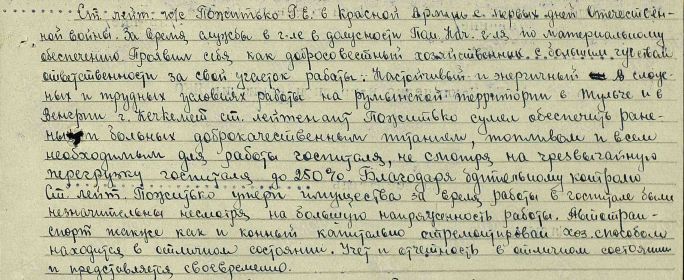 Ст. лейт. и/с Пожитько Г.Е. в Красной Армии с первых дней Отечествен-
ной войны. За время службы в г-ле в должности Пом. Нач. г-ля по материальному
обеспечению. Проявил себя как добросовестный хозяйственник с большим чувством
ответственности за свой участок работы. Настойчивый и энергичный в слож-
ных и трудных условиях работы на румынской территории в Тульче и в
Венгрии г. Кечкемет ст. лейтенант Пожитько сумел обеспечить ране-
ных и больных доброкачественным питанием, топливом и всем
необходимым для работы госпиталя, не смотря на чрезвычайную
перегрузку госпиталя до 250%. Благодаря бдительному контролю
Ст. лейт. Пожитько утери имущества за время работы в госпитале были
незначительны несмотря на большую напряженность работы. Автотран-
спорт также как и конный капитально отремонтирован хоз. способом
находится в отличном состоянии. Учет и отчетность в отличном состоянии
и представляется своевременно.